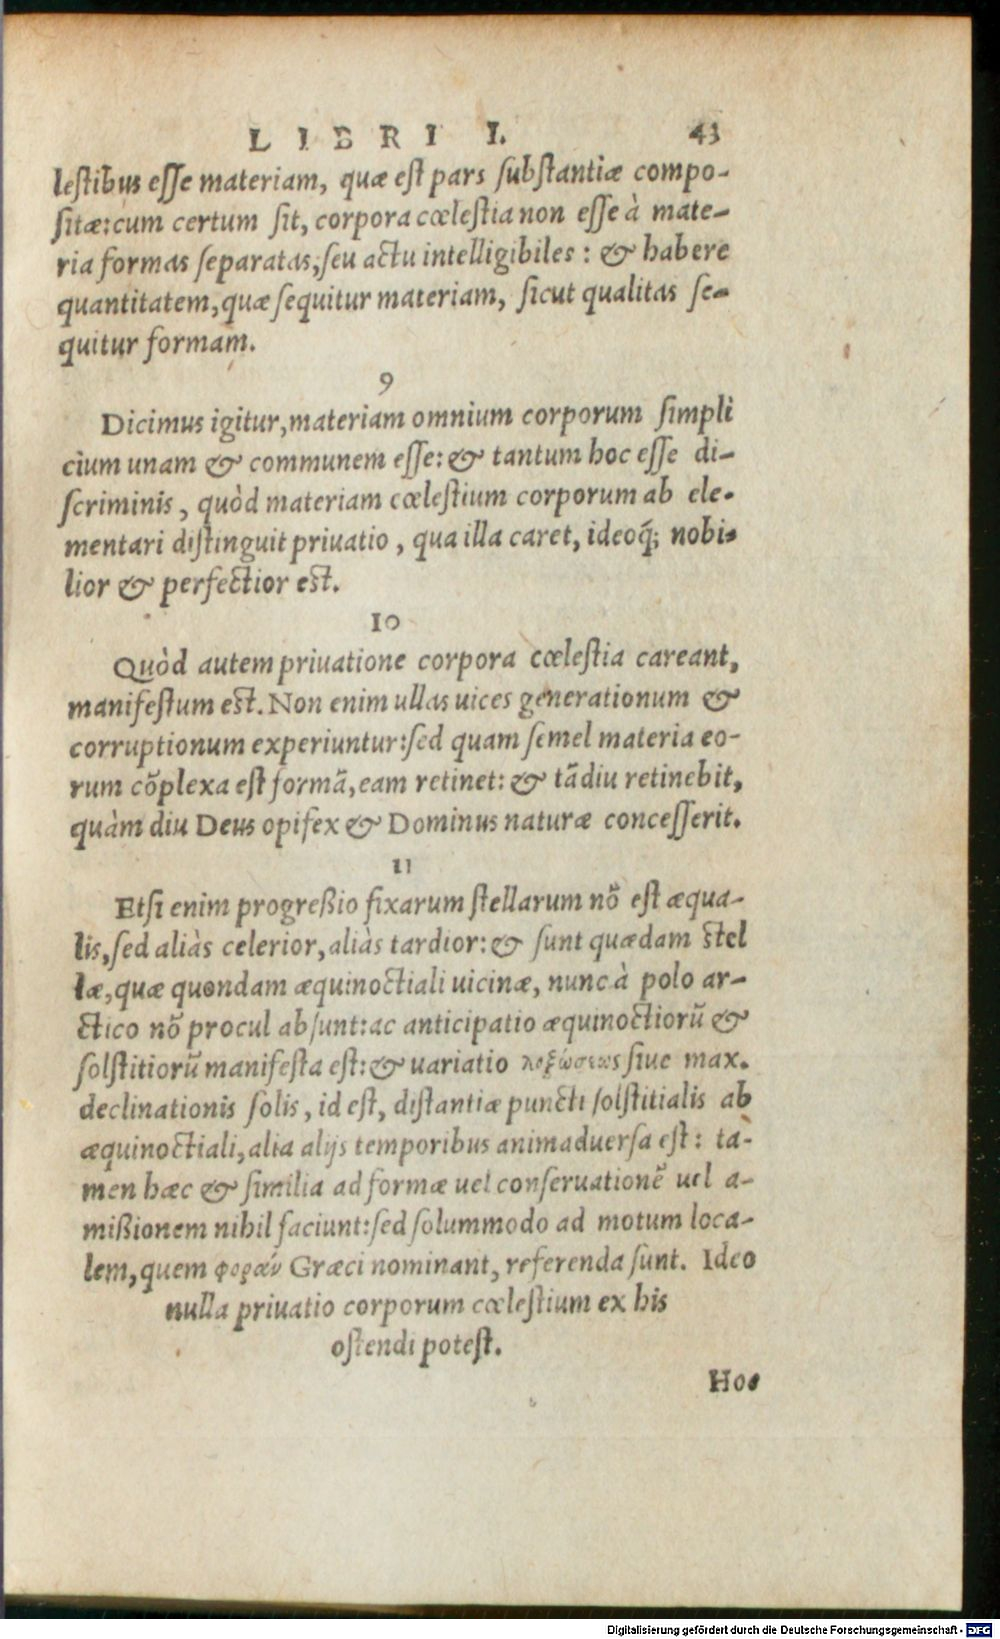 LIBRI I. 43
lestibus esse materiam, quæ est pars substantiæ compo-
sitæ: cum certum sit, corpora cœlestia non esse à mate-
ria formas separatas, seu actu intelligibiles: & habere
quantitatem, quæ sequitur materiam, sicut qualitas se-
quitur formam.
9
Dicimus igitur, materiam omnium corporum simpli
cium unam & communem esse: & tantum hoc esse di-
scriminis, quòd materiam cœlestium corporum ab ele-
mentari distinguit priuatio, qua illa caret, ideoq́; nobi-
lior & perfectior est.
10
Quòd autem priuatione corpora cœlestia careant,
manifestum est. Non enim ullas uices generationum &
corruptionum experiuntur: sed quam semel materia eo-
rum cõplexa est formã, eam retinet: & tãdiu retinebit,
quàm diu Deus opifex & Dominus naturæ concesserit.
11
Etsi enim progreßio fixarum stellarum nõ est æqua-
lis, sed aliàs celerior, aliàs tardior: & sunt quædam stel
læ, quæ quondam æquinoctiali uicinæ, nunc à polo ar-
ctico nõ procul absunt: ac anticipatio æquinoctiorũ &
solstitiorũ manifesta est: & uariatio λοξώσεως siue max.
declinationis solis, id est, distantiæ puncti solstitialis ab
æquinoctiali, alia alijs temporibus animaduersa est: ta-
men hæc & similia ad formæ uel conseruationẽ uel a-
mißionem nihil faciunt: sed solummodo ad motum loca-
lem, quem φορὰν Græci nominant, referenda sunt. Ideo
nulla priuatio corporum cœlestium ex his
ostendi potest.
Hoc
Digitalisierung gefördert durch die Deutsche Forschungsgemeinschaft - DFG